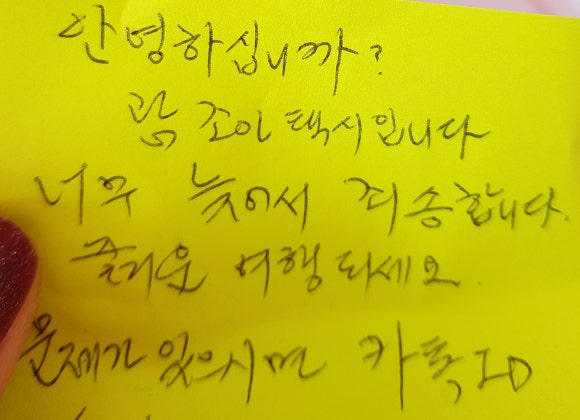 안녕하십니까?
괌 조이 택시입니다
너무 늦어서 죄송합니다.
즐거운 여행 되세요
문제가 있으시면 카톡 ID